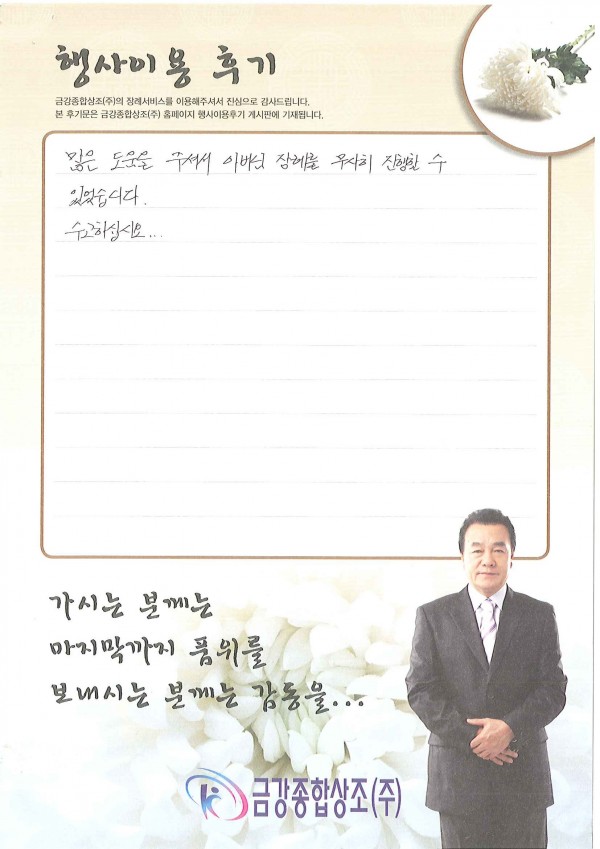 행사이용 후기
금강종합상조(주)의 장례서비스를 이용해주셔서 진심으로 감사드립니다.
본 후기문은 금강종합상조(주) 홈페이지 행사이용후기 게시판에 기재됩니다.
많은 도움을 주셔서 아버님 장례를 무사히 진행할 수
있었습니다.
수고하십시요...
가시는 분께는
마지막까지 품위를
보내시는 분께는 감동을...
금강종합상조(주)